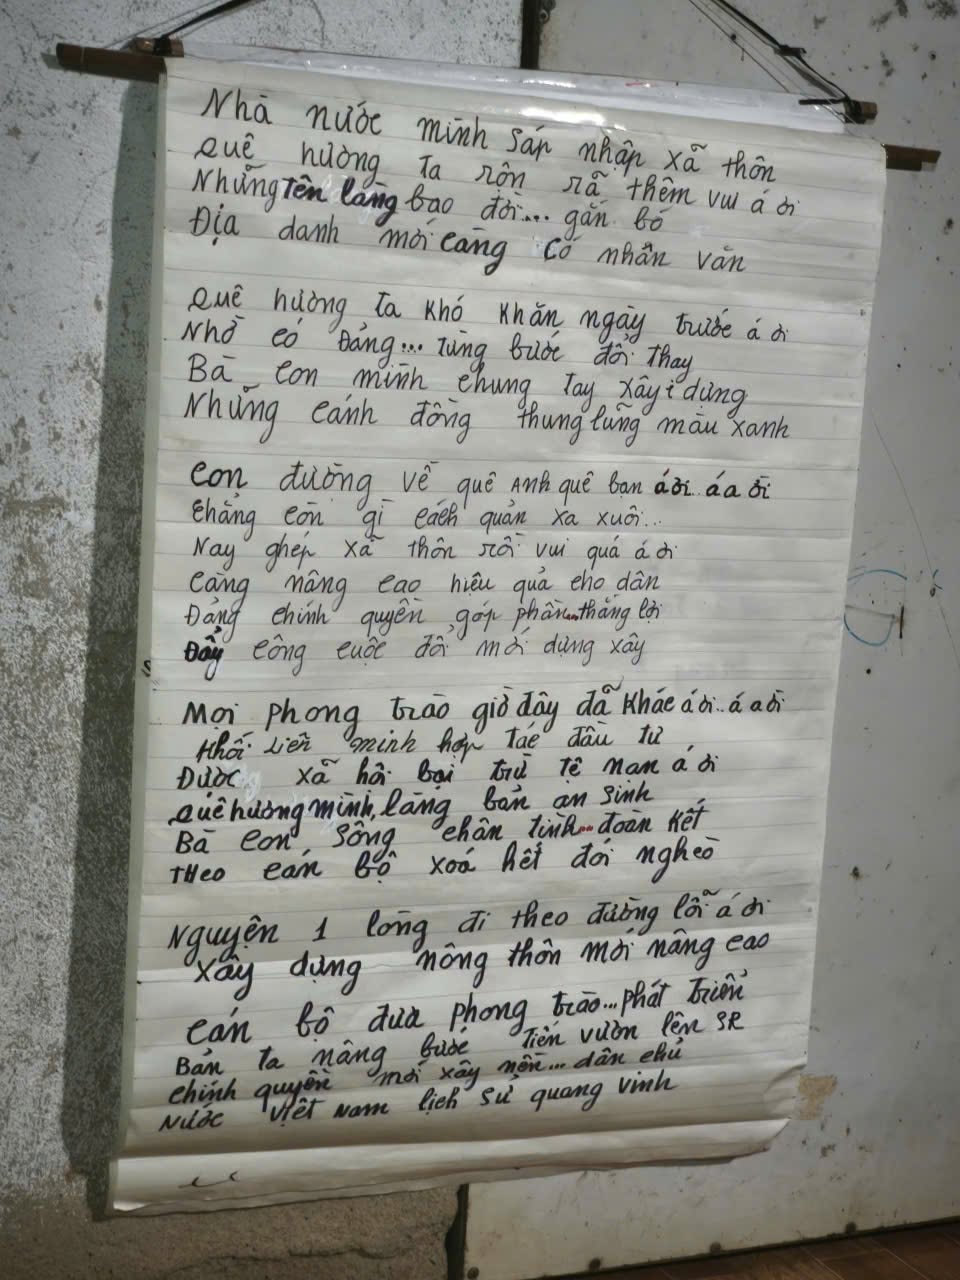 Nhà nước mình sáp nhập xã thôn
Quê hương ta rộn rã thêm vui á ơi
Những Tên làng bao đời... gắn bó
Địa danh mới càng có nhân văn
Quê hương ta khó khăn ngày trước á ơi
Nhờ có Đảng... từng bước đổi thay
Bà con mình chung tay xây dựng
Những cánh đồng thung lũng màu xanh
Con đường về quê Anh quê bạn á ơi á a ơi
Chẳng còn gì cách quản xa xuôi...
Nay ghép xã thôn rồi vui quá á ơi
Càng nâng cao hiệu quả cho dân
Đảng chính quyền góp phần...thắng lợi
Đẩy công cuộc đổi mới dựng xây
Mọi phong trào giờ đây đã khác á ơi..á a ơi
Khối liên minh hợp tác đầu tư
Được xã hội bại trừ tệ nạn á ơi
Quê hương mình, làng bản an sinh
Bà con sống chân tình...đoàn kết
Theo cán bộ xoá hết đói nghèo
Nguyện 1 lòng đi theo đường lối á ơi
Xây dựng nông thôn mới nâng cao
Cán bộ đưa phong trào...phát triển
Bản ta nâng bước tiến vươn lên SR
Chính quyền mới xây nền...dân chủ
Nước Việt Nam lịch sử quang vinh